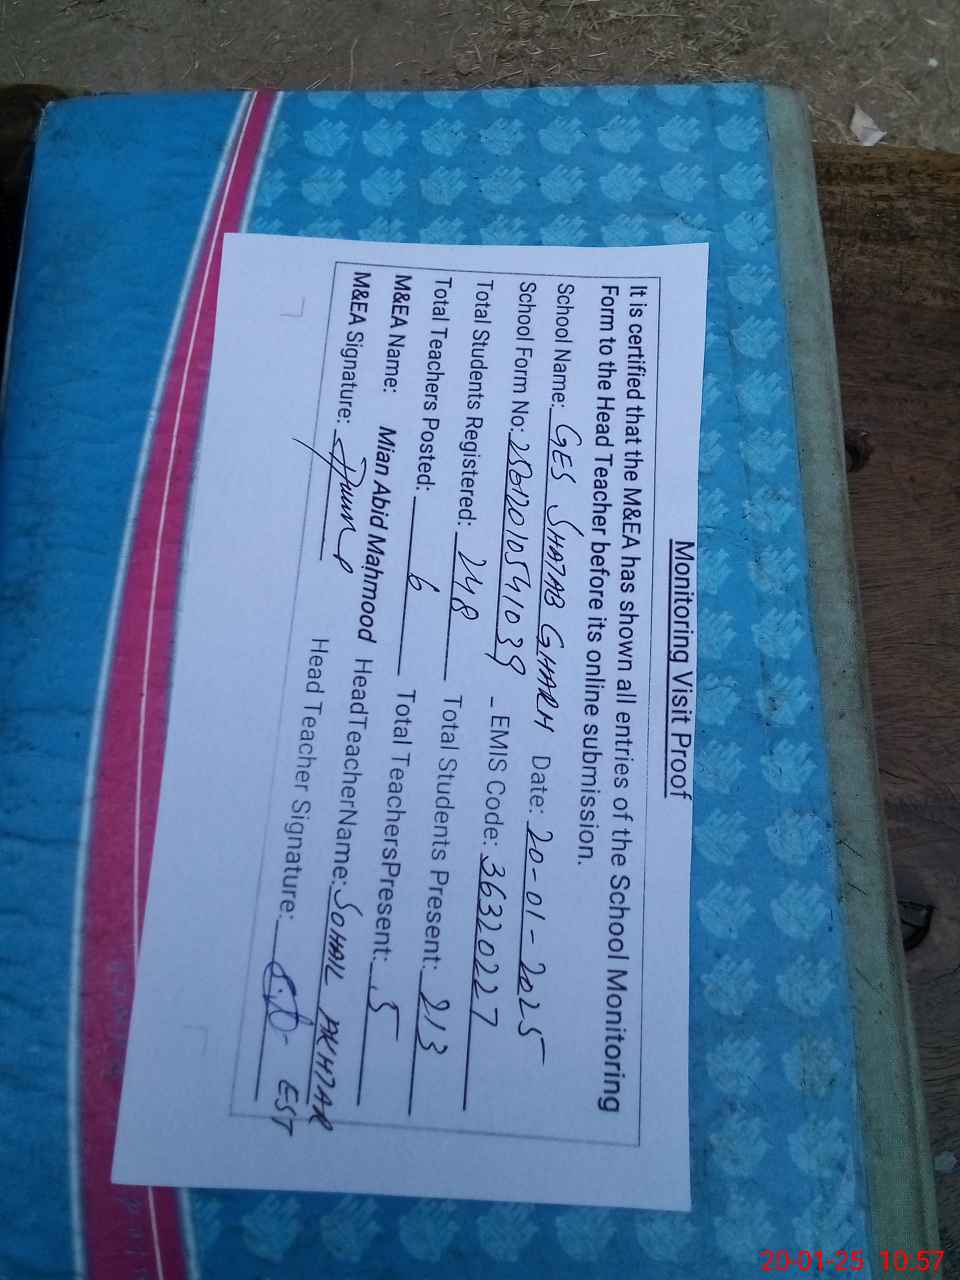 Monitoring Visit Proof
It is certified that the M&EA has shown all entries of the School Monitoring
Form to the Head Teacher before its online submission.
School Name: GES SHATAB GHARH Date: 20-01-2025
School Form No: 25612010541039 - EMIS Code: 36320227
Total Students Registered: 248 Total Students Present: 213
Total Teachers Posted: 6 Total TeachersPresent: 5
M&EA Name: Mian Abid Mahmood HeadTeacherName: SOHAIL AKHTAR
M&EA Signature: Head Teacher Signature: EST
20-01-25 10:57